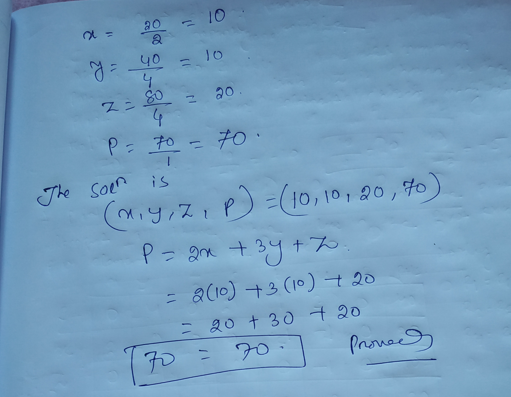 x = 20/2 = 10.
y = 40/4 = 10
Z = 80/4 = 20.
P = 70/1 = 70.
The Solⁿ is
(x, y, Z, P) = (10, 10, 20, 70)
P = 2x + 3y + Z.
= 2(10) + 3(10) + 20
= 20 + 30 + 20
70 = 70. Proved